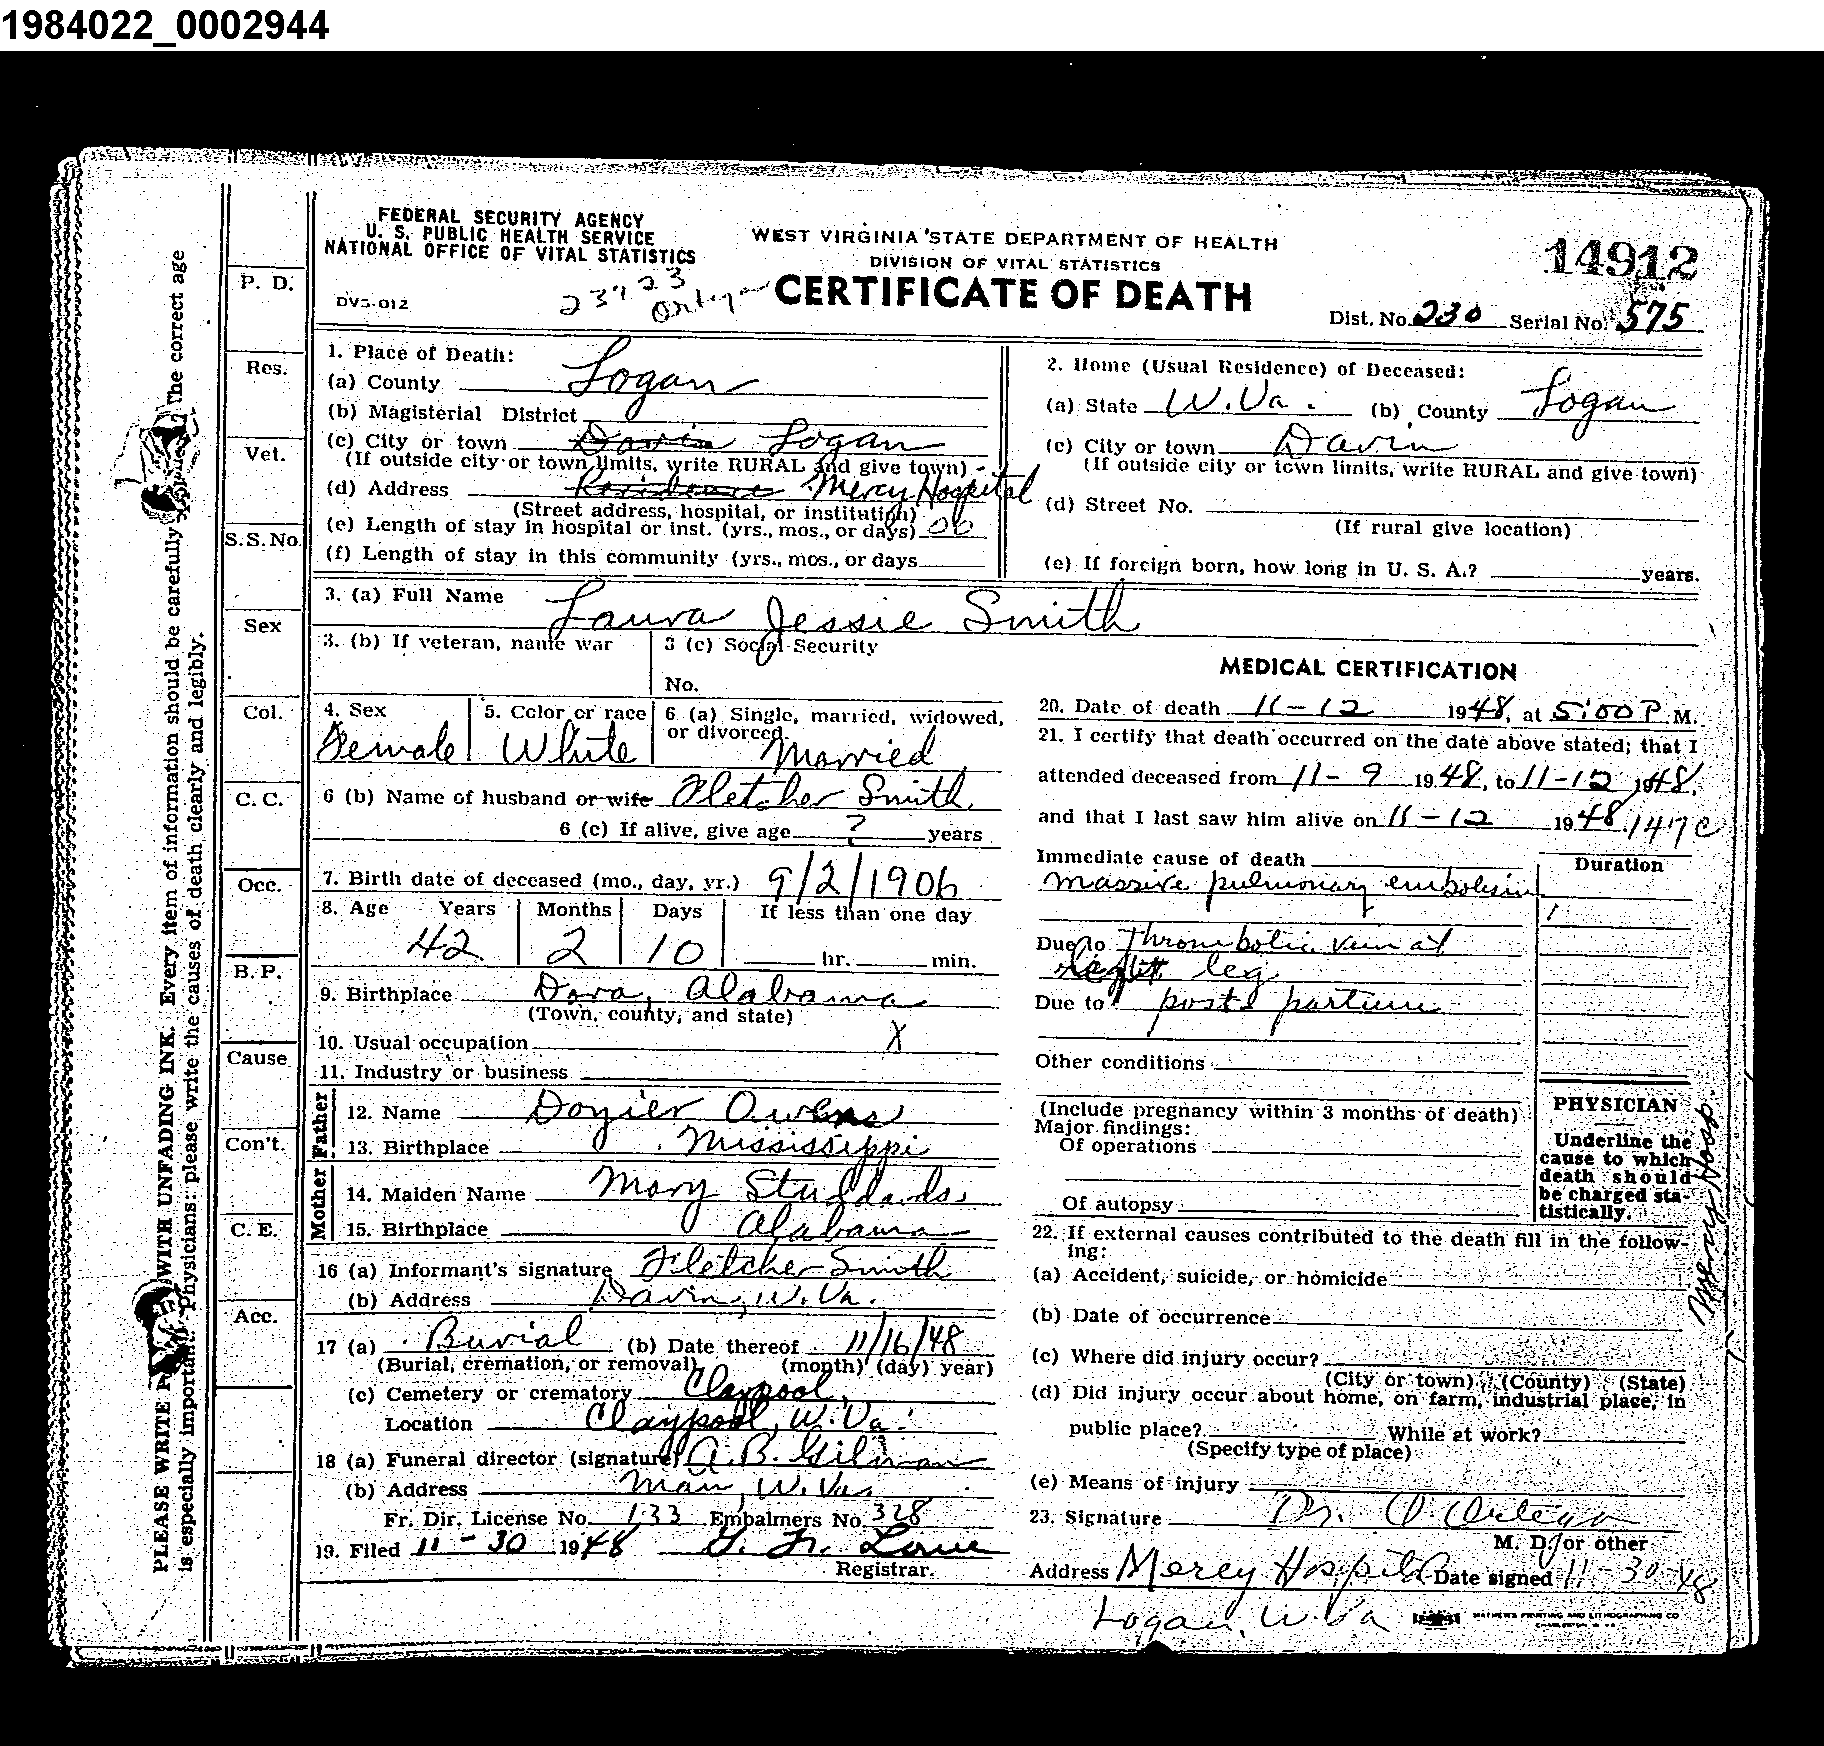 1984022_0002944
FEDERAL SECURITY AGENCY
U. S. PUBLIC HEALTH SERVICE
NATIONAL OFFICE OF VITAL STATISTICS
DVS-012
WEST VIRGINIA STATE DEPARTMENT OF HEALTH
DIVISION OF VITAL STATISTICS
CERTIFICATE OF DEATH
14912
Dist. No. 230 Serial No. 575
PLEASE WRITE WITH UNFADING INK. Every item of information should be carefully The correct age
is especially important. Physicians: please write the causes of death clearly and legibly.
P. D.
Res.
Vet.
S.S. No.
Sex
Col.
C. C.
Occ.
B. P.
Cause
Con't.
C. E.
Acc.
1. Place of Death:
(a) County Logan
(b) Magisterial District
(c) City or town Davin Logan
(If outside city or town limits, write RURAL and give town)
(d) Address Residence Mercy Hospital
(Street address, hospital, or institution)
(e) Length of stay in hospital or inst. (yrs., mos., or days)
(f) Length of stay in this community (yrs., mos., or days
2. Home (Usual Residence) of Deceased:
(a) State W. Va. (b) County Logan
(c) City or town Davin
(If outside city or town limits, write RURAL and give town)
(d) Street No.
(If rural give location)
(e) If foreign born, how long in U. S. A.? years.
3. (a) Full Name Laura Jessie Smith
3. (b) If veteran, name war
3 (c) Social Security
No.
4. Sex
Female
5. Color or race
White
6 (a) Single, married, widowed,
or divorced.
Married
6 (b) Name of husband or wife Fletcher Smith
6 (c) If alive, give age ? years
7. Birth date of deceased (mo., day, yr.) 9/2/1906
8. Age Years Months Days If less than one day
42 2 10 hr. min.
9. Birthplace Dora, Alabama
(Town, county, and state)
10. Usual occupation X
11. Industry or business
Father
12. Name Dozier Owens
13. Birthplace Mississippi
Mother
14. Maiden Name Mary Studdards
15. Birthplace Alabama
16 (a) Informant's signature Fletcher Smith
(b) Address Davin, W. Va.
17 (a) Burial (b) Date thereof 11/16/48
(Burial, cremation, or removal) (month) (day) year)
(c) Cemetery or crematory Claypool,
Location Claypool, W. Va.
18 (a) Funeral director (signature) A. B. Gilman
(b) Address Man, W. Va.
Fr. Dir. License No. 133 Embalmers No. 328
19. Filed 11-30 1948
Registrar.
MEDICAL CERTIFICATION
20. Date of death 11-12 1948, at 5:00 P. M.
21. I certify that death occurred on the date above stated; that I
attended deceased from 11-9 1948, to 11-12 1948,
and that I last saw him alive on 11-12 1948
Immediate cause of death
Duration
massive pulmonary embolism
Due to Thrombotic vein at
leg
Due to post partum
Other conditions
(Include pregnancy within 3 months of death)
Major findings:
Of operations
Of autopsy
PHYSICIAN
Underline the
cause to which
death should
be charged sta-
tistically.
Mercy Hosp.
22. If external causes contributed to the death fill in the follow-
ing:
(a) Accident, suicide, or homicide
(b) Date of occurrence
(c) Where did injury occur?
(City or town) (County) (State)
(d) Did injury occur about home, on farm, industrial place, in
public place? While at work?
(Specify type of place)
(e) Means of injury
23. Signature Dr. O. Ortega
M. D. or other
Address Mercy Hospital Date signed 11-30-48
Logan, W. Va